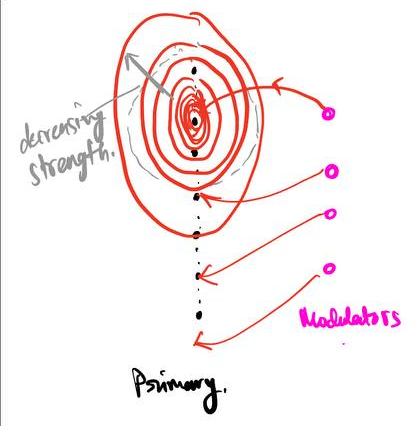 decreasing
strength.
Modulators
Primary.